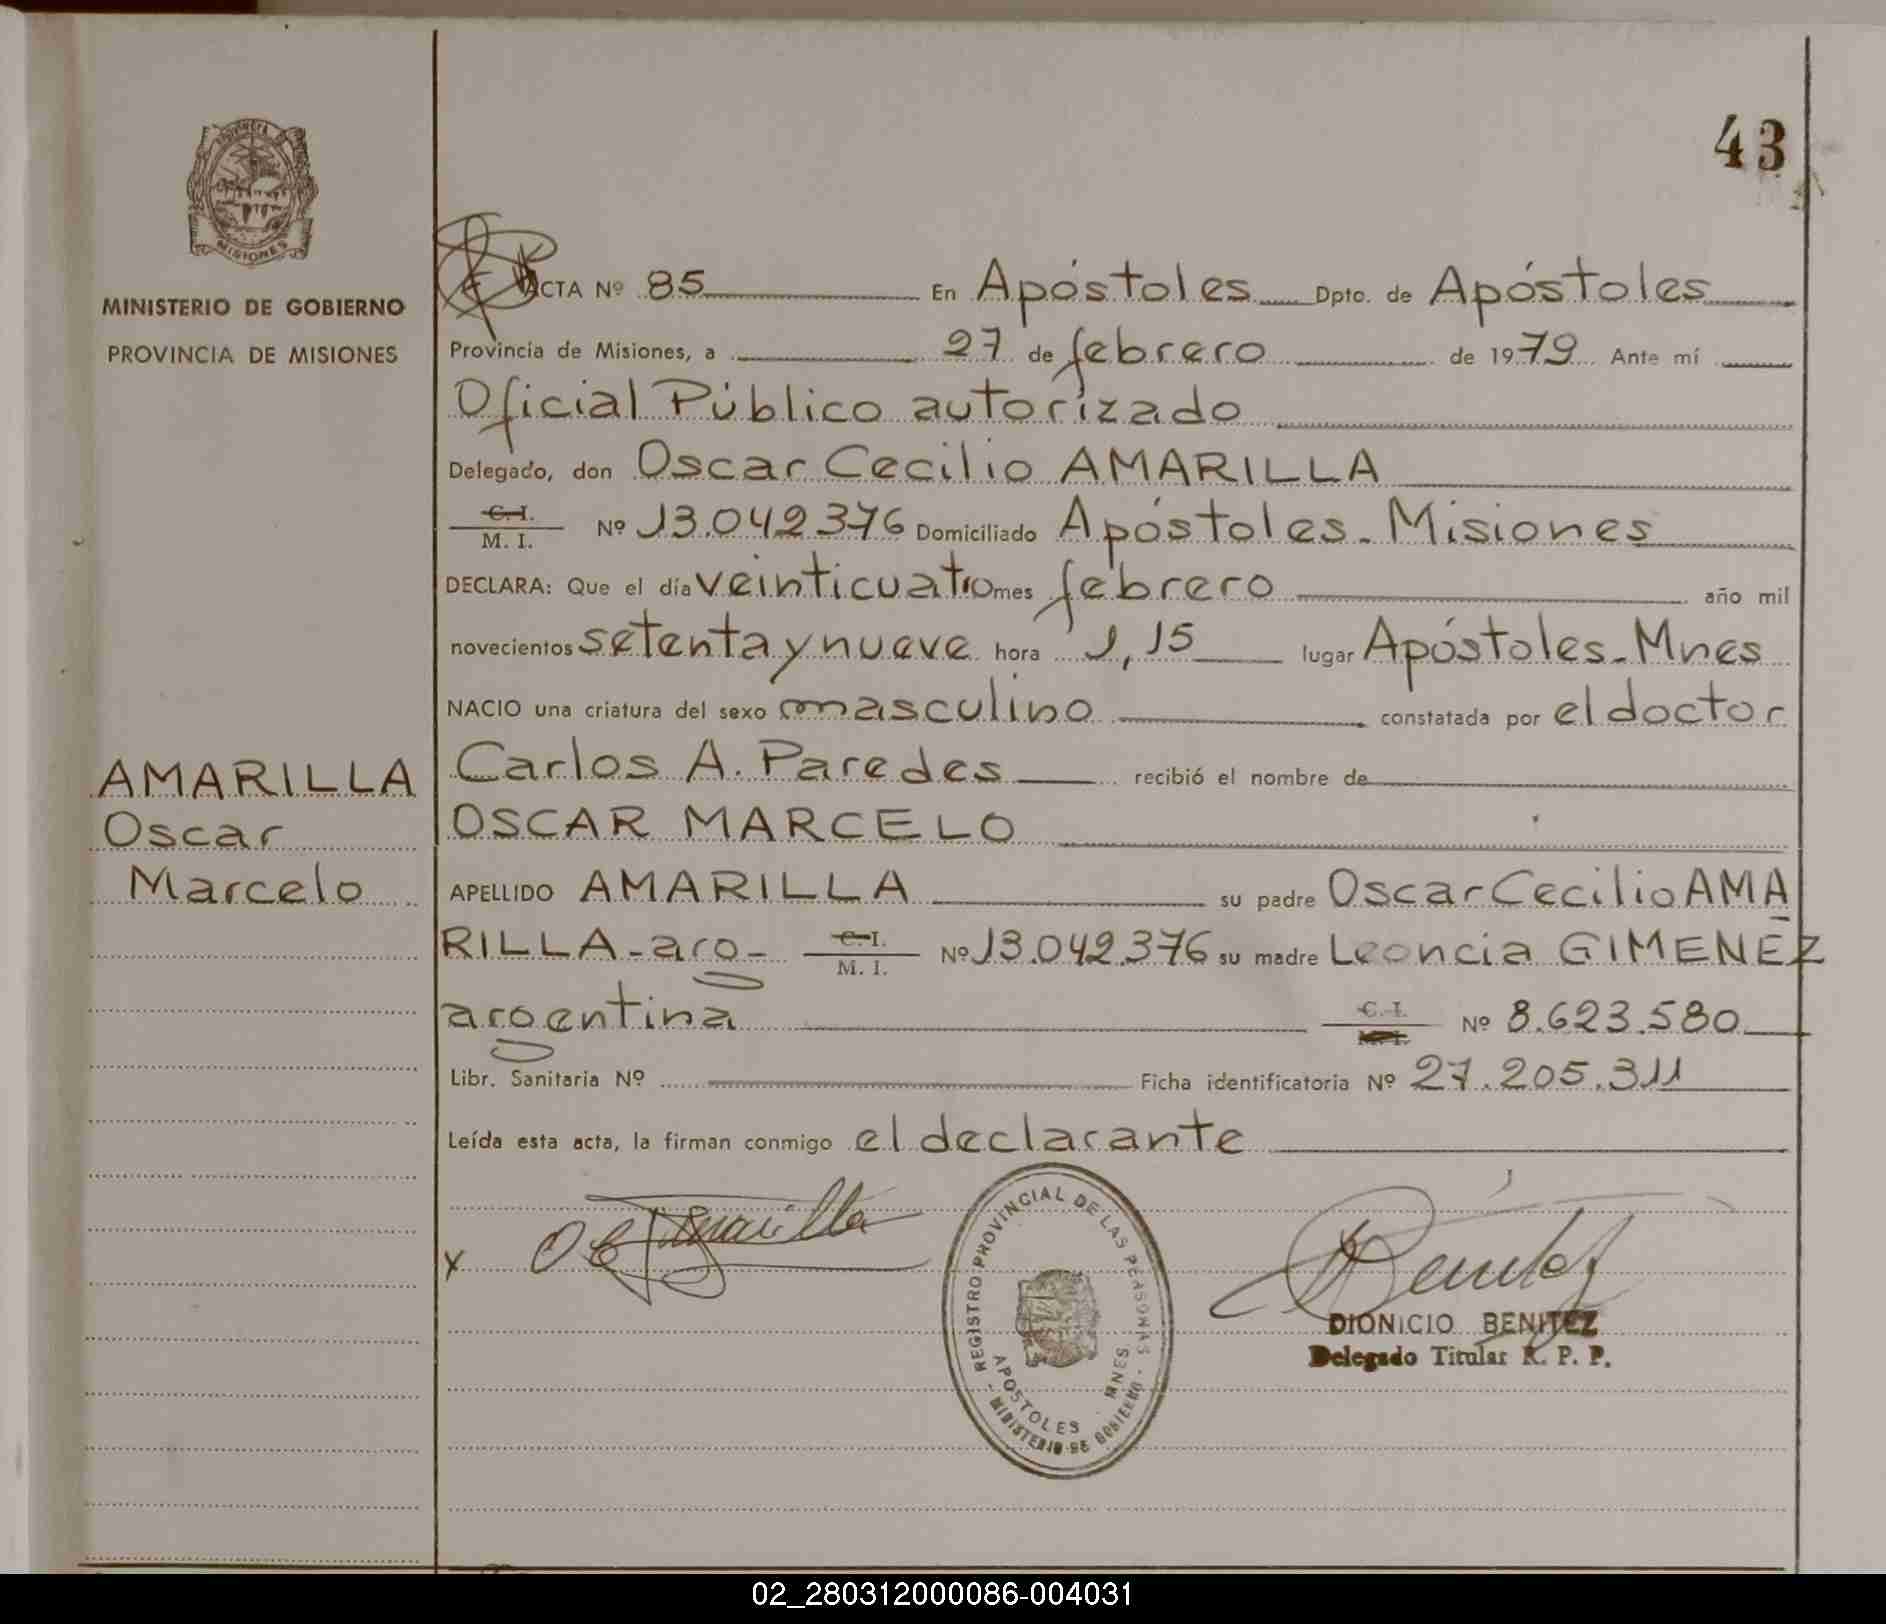 43
PROVINCIA DE
MISIONES
MINISTERIO DE GOBIERNO
PROVINCIA DE MISIONES
ACTA Nº 85 En Apóstoles Dpto. de Apóstoles
Provincia de Misiones, a 27 de febrero de 1979 Ante mí
Oficial Público autorizado
Delegado, don Oscar Cecilio AMARILLA
C. I.
M. I. Nº 13.042.376 Domiciliado Apóstoles - Misiones
DECLARA: Que el día veinticuatro mes febrero año mil
novecientos setenta y nueve hora 1,15 lugar Apóstoles - Mnes
NACIO una criatura del sexo masculino constatada por el doctor
Carlos A. Paredes recibió el nombre de
OSCAR MARCELO
APELLIDO AMARILLA su padre Oscar Cecilio AMA
RILLA - arg - C. I.
M. I. Nº 13.042.376 su madre Leoncia GIMENEZ
argentina C. I.
M. I. Nº 8.623.580
Libr. Sanitaria Nº Ficha identificatoria Nº 27.205.311
Leída esta acta, la firman conmigo el declarante
AMARILLA
Oscar
Marcelo
x O C Amarilla
Benitez
REGISTRO PROVINCIAL DE LAS PERSONAS
APOSTOLES - MNES.
- MINISTERIO DE GOBIERNO -
DIONICIO BENITEZ
Delegado Titular R. P. P.
02_280312000086-004031